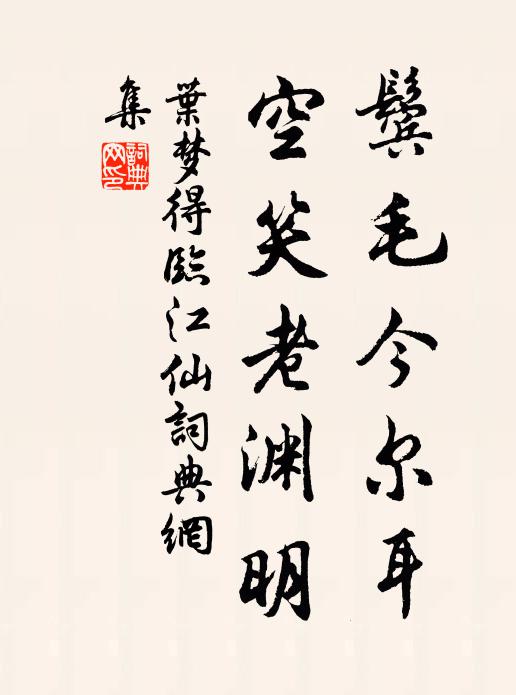 鬓毛今尔耳
空笑老渊明
葉梦得臨江仙詞典網
集
詞典網印